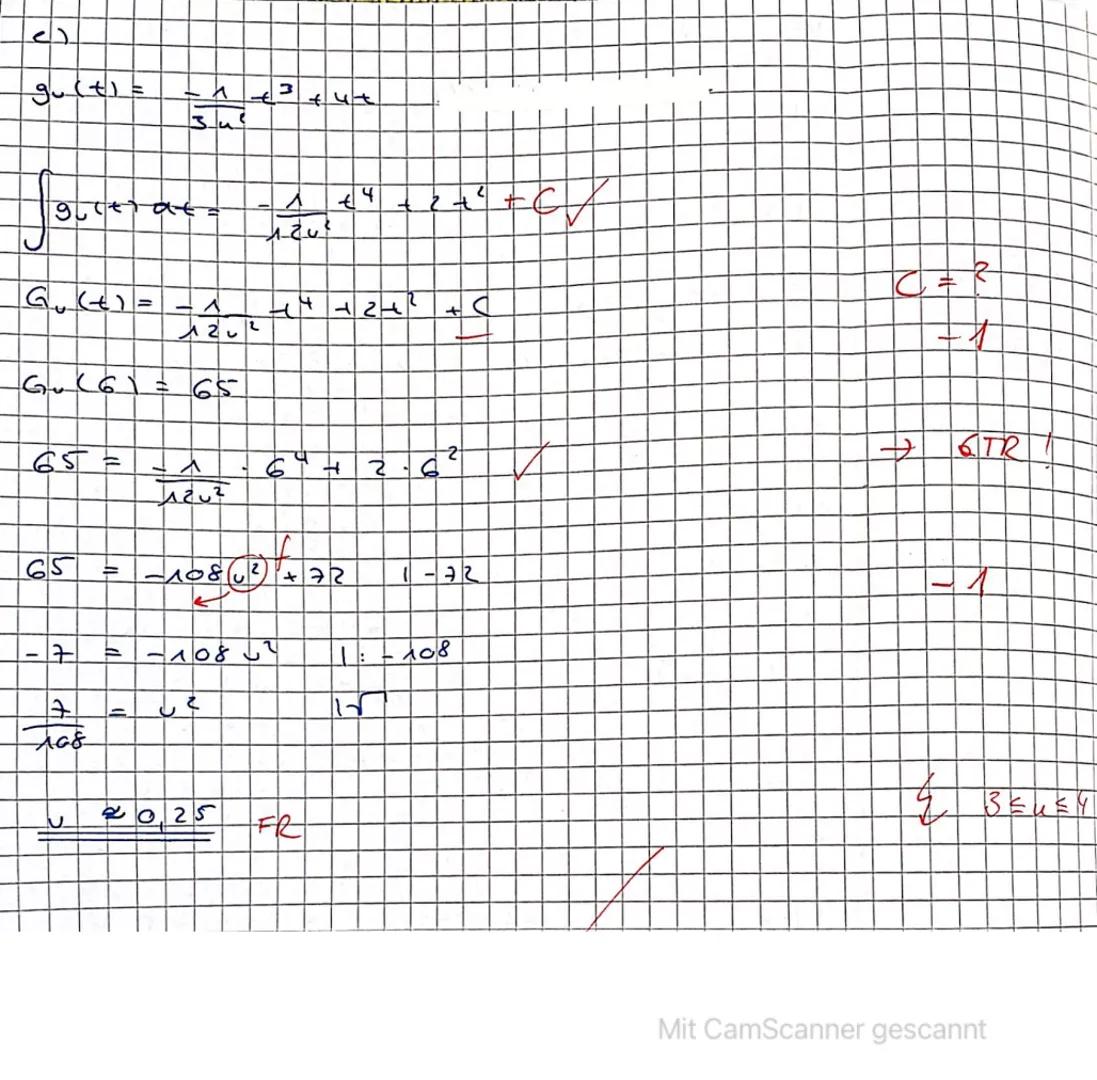 c)
gᵤ(t) = -1/3u² t³ + 4t
∫gᵤ(t) dt = -1/12u² t⁴ + 2t² + C ✓
Gᵤ(t) = -1/12u² t⁴ + 2t² + C
C = ?
-1
Gᵤ(6) = 65
65 = -1/12u² · 6⁴ + 2 · 6² ✓
→ GTR !
65 = -108 u² + 72 | -72
f
-1
-7 = -108 u² | : -108
7/108 = u² | √
u ≈ 0,25 FR
3 ≤ u ≤ 4
Mit CamScanner gescannt